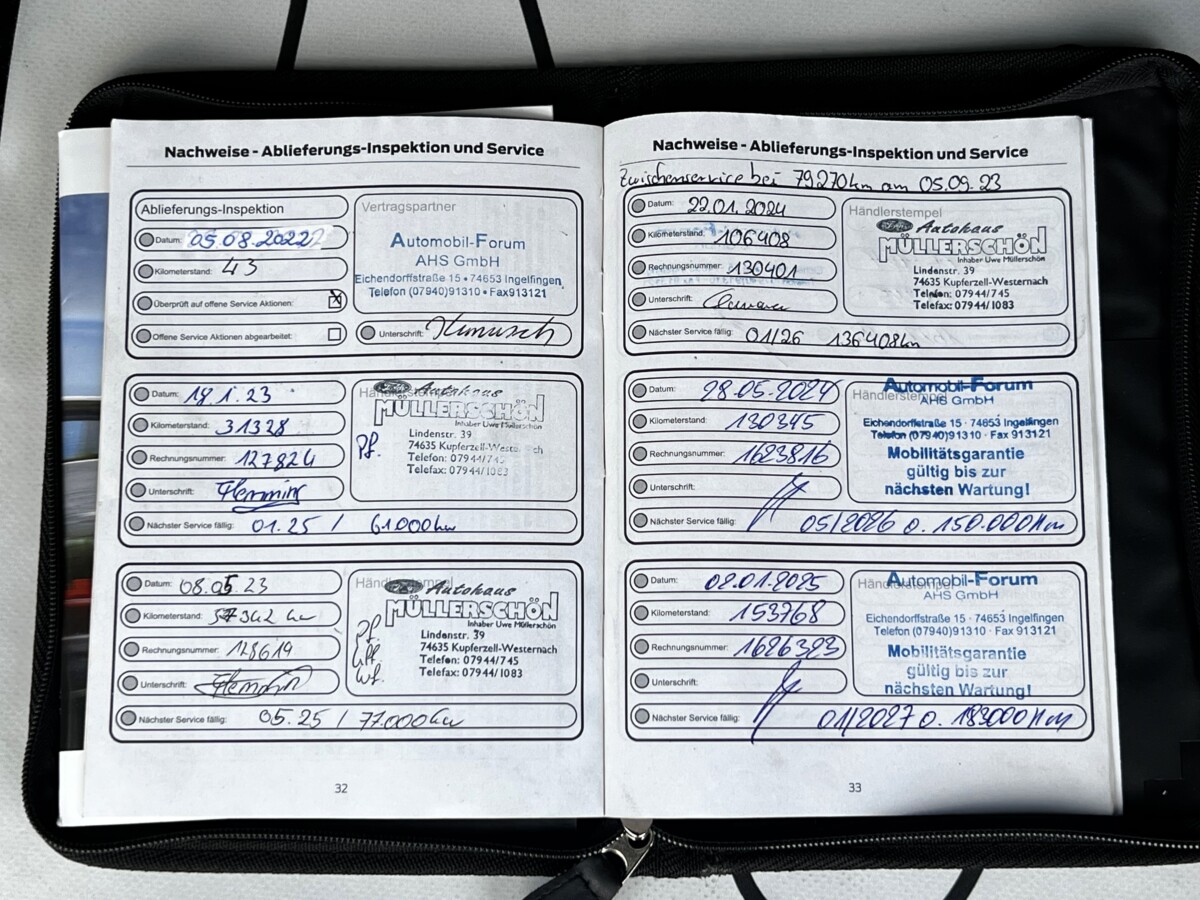 Nachweise - Ablieferungs-Inspektion und Service
Ablieferungs-Inspektion
Datum: 05.08.2022
Kilometerstand: 43
Überprüft auf offene Service Aktionen:
Offene Service Aktionen abgearbeitet:
Vertragspartner
Automobil-Forum
AHS GmbH
Eichendorffstraße 15 • 74653 Ingelfingen
Telefon (07940)91310 • Fax 913121
Unterschrift:
Datum: 18.1.23
Kilometerstand: 31328
Rechnungsnummer: 127824
Unterschrift: Flemming
Nächster Service fällig: 01.25 / 61000km
Ford Autohaus
MÜLLERSCHÖN
Inhaber Uwe Müllerschön
Pf.
Lindenstr. 39
74635 Kupferzell-Westernach
Telefon: 07944/745
Telefax: 07944/1083
Datum: 08.05.23
Kilometerstand: 57342 km
Rechnungsnummer: 128619
Unterschrift:
Nächster Service fällig: 05.25 / 77.000km
Händlerstempel
Ford Autohaus
MÜLLERSCHÖN
Inhaber Uwe Müllerschön
Pf.
Wf.
Lindenstr. 39
74635 Kupferzell-Westernach
Telefon: 07944/745
Telefax: 07944/1083
32
Nachweise - Ablieferungs-Inspektion und Service
Zwischenservice bei 79270km am 05.09.23
Datum: 22.01.2024
Kilometerstand: 106408
Rechnungsnummer: 130401
Unterschrift:
Nächster Service fällig: 01/26 136408km
Händlerstempel
Ford Autohaus
MÜLLERSCHÖN
Inhaber Uwe Müllerschön
Lindenstr. 39
74635 Kupferzell-Westernach
Telefon: 07944/745
Telefax: 07944/1083
Datum: 28.05.2024
Kilometerstand: 130345
Rechnungsnummer: 1623816
Unterschrift:
Nächster Service fällig: 05/2026 o. 150.000 km
Händlerstempel
Automobil-Forum
AHS GmbH
Eichendorffstraße 15 · 74653 Ingelfingen
Telefon (07940)91310 · Fax 913121
Mobilitätsgarantie
gültig bis zur
nächsten Wartung!
Datum: 02.01.2025
Kilometerstand: 153768
Rechnungsnummer: 1686323
Unterschrift:
Nächster Service fällig: 01/2027 o. 183000 km
Händlerstempel
Automobil-Forum
AHS GmbH
Eichendorffstraße 15 · 74653 Ingelfingen
Telefon (07940)91310 · Fax 913121
Mobilitätsgarantie
gültig bis zur
nächsten Wartung!
33